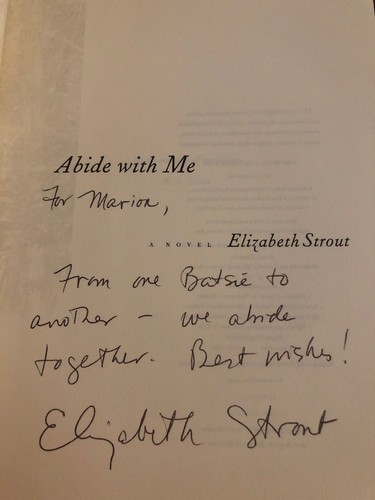 Abide with Me
For Marion,
A NOVEL Elizabeth Strout
From one Batsie to
another - we abide
together. Best wishes!
Elizabeth Strout